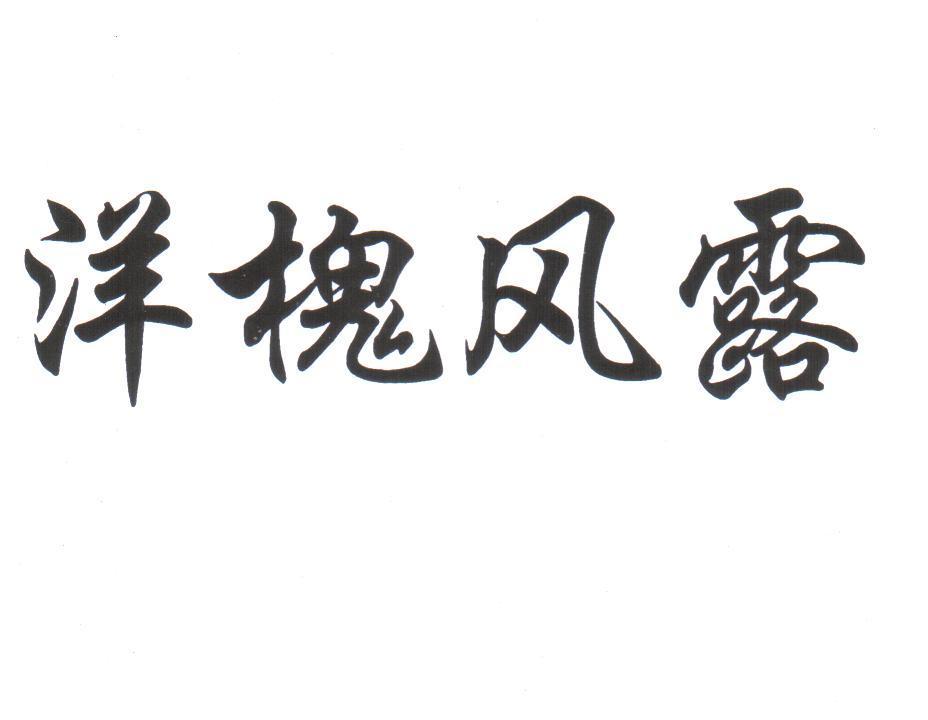 洋槐风露